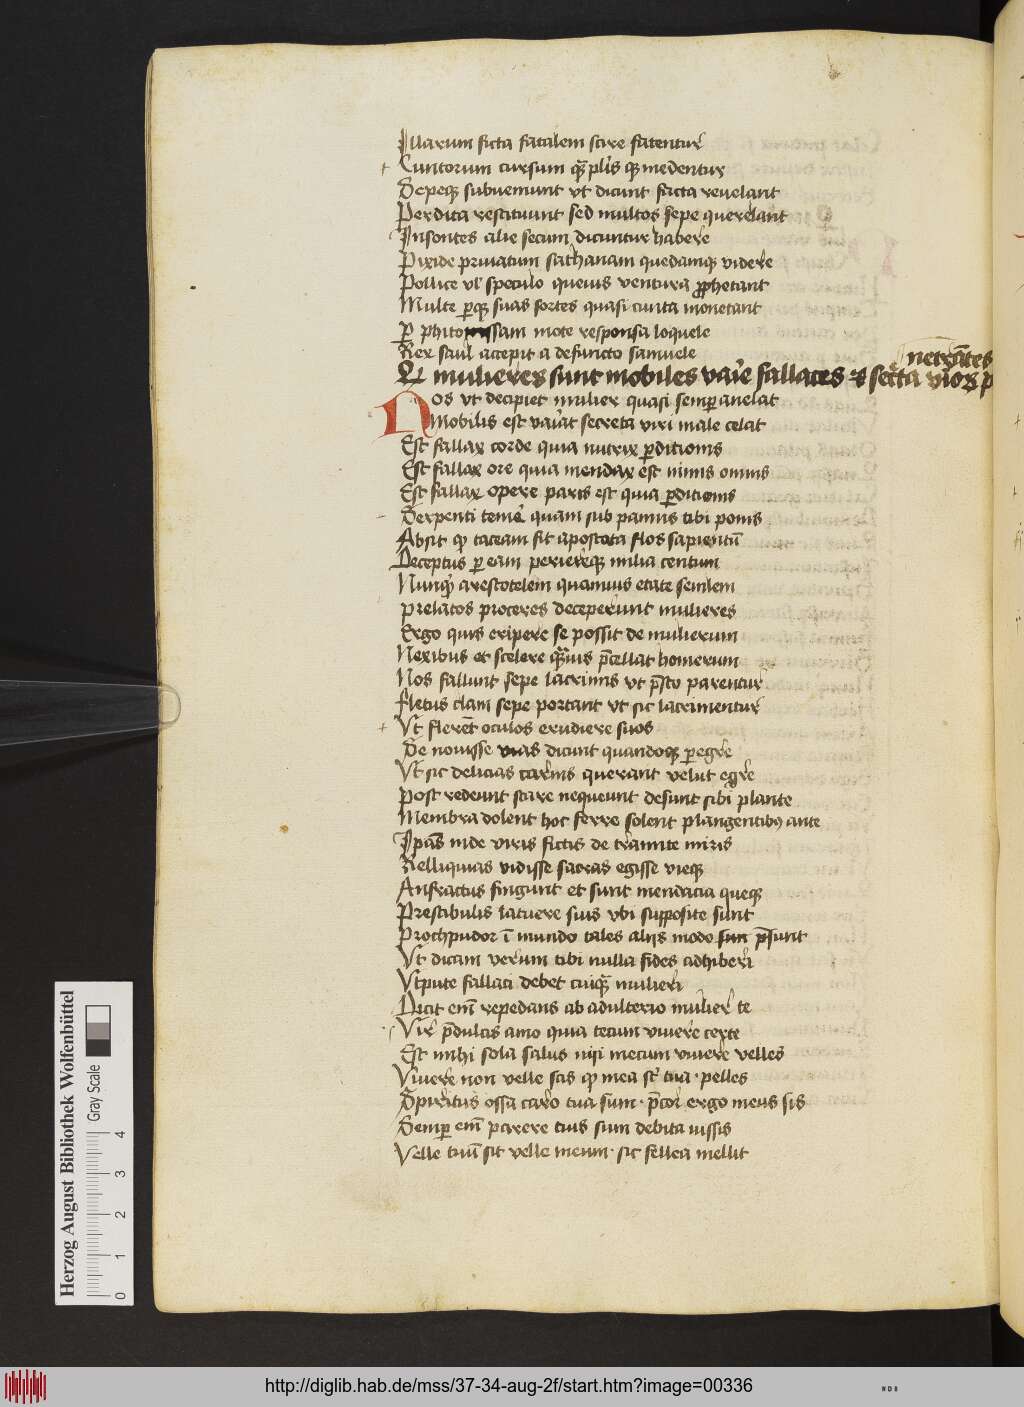 Illarum ficta fatalem scire fatentur̄
Cuntorum cursum qꝫ pl̄is qꝫ medentur
Sepeqꝫ subueniunt vt dicunt facta reuelant
Perdita restituunt sed multos sepe querelant
Insontes alie secum dicuntur habere
Pixide priuatum sathanam quedamqꝫ videre
Pollice vl̄ speculo queuis ventura ꝓphetant
Multe ꝑqꝫ suas sortes quasi cuncta monetant
ꝑ phitonissam mote responsa loquele
Rex saul accepit a defuncto samuele
netrātes
Qͩ mulieres sunt mobiles vaīe fallaces ⁊ secͬta viroꝝ p
Nos vt decipiet mulier quasi semꝑ anelat
Mobilis est vaīat secreta viri male celat
Est fallax corde quia nutrix ꝑditionis
Est fallax ore quia mendax est nimis omnis
Est fallax opere paris est quia ꝑditionis
Serpenti temē quam sub pannis tibi ponis
Absit qꝫ taceam sit apostata flos sapientū
Deceptus ꝑ eam periereqꝫ milia centum
Nunqꝫ arestotelem quamuis etate senilem
prelatos proceres deceperunt mulieres
Ergo quis eripere se possit de mulierum
Nexibus et scelere qꝫuis p̄cellat homerum
Nos fallunt sepe lacrimis vt p̄sto parentur
fletus clam sepe portant vt sic lacrimentur
Vt flerent oculos erudiere suos
Se nouisse vias dicunt quandoqꝫ ꝑegre
Vt sic delicias carnis querant velut egre
Post redeunt stare nequeunt desunt sibi plante
Membra dolent hoc ferre solent plangentibꝰ ante
Ip̄as inde viris fictis de tramite miris
Relliquias vidisse sacras egisse vieqꝫ
Anfractus fingunt et sunt mendacia queqꝫ
Prestibulis latuere suis vbi supposite sunt
Prochpudor ī mundo tales alijs modo p̄sunt
Vt dicam verum tibi nulla fides adhiberi
Vtpute fallaci debet cuiqꝫ mulieri
Dicit em̄ repedans ab adulterio mulier te
Vir p̄dulcis amo quia tecum viuere certe
Est mihi sola salus nisi mecum viuere velles
Viuere non velle scis qꝫ mea st̄ tua · pelles
Spiritus ossa caro tua sum · p̄cor ergo meus sis
Semꝑ em̄ parere tuis sum debita iussis
Velle tuū sit velle meum · sic fellea mellit
Herzog August Bibliothek Wolfenbüttel
Gray Scale
0 1 2 3 4
http://diglib.hab.de/mss/37-34-aug-2f/start.htm?image=00336